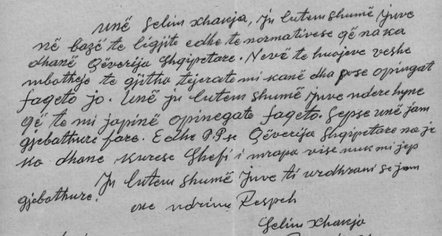 Unë Selim Xhanja, Ju lutem shumë Juve
në bazë te ligjit edhe te normativese që na ka
dhanë Qëverija Shqipetare. Nevë te huojeve veshe
mbathje te gjitha tjerate mi kanë dha pose opingat
fageto jo. Unë ju lutem shumë Juve ndere hyne
që te mi japinë opinegate fageto. Sepse unë jam
gjebathure fare. Edhe P.P.se Qëverija Shqipetare na ji
ka dhane kurese Shefi i mrapa vise nuk mi jep
Ju lutem shumë Juve ti urdhrani se jam
gjebathure.
me ndrime Respeh
Selim Xhanja